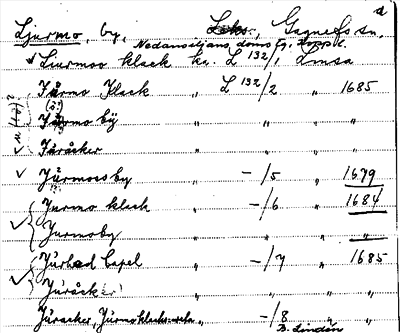 a
Ljurmo, by, Leks., Gagnefs sn,
Nedansiljans doms fg, Kopp l.
Liurmoo klack ka. L 132/1 Lmsa
Jürmo Klack L 132/2 " 1685
Jürmo bÿ " " "
Juråcker " " "
Jürmoes by -/5 " 1679
Jurmo klack -/6 " 1684
Jurmoby " "
Jürbod Capel -/7 " 1685
Juråcker " " "
Juracker, Jurmoklack -/8 "
B. Lindén